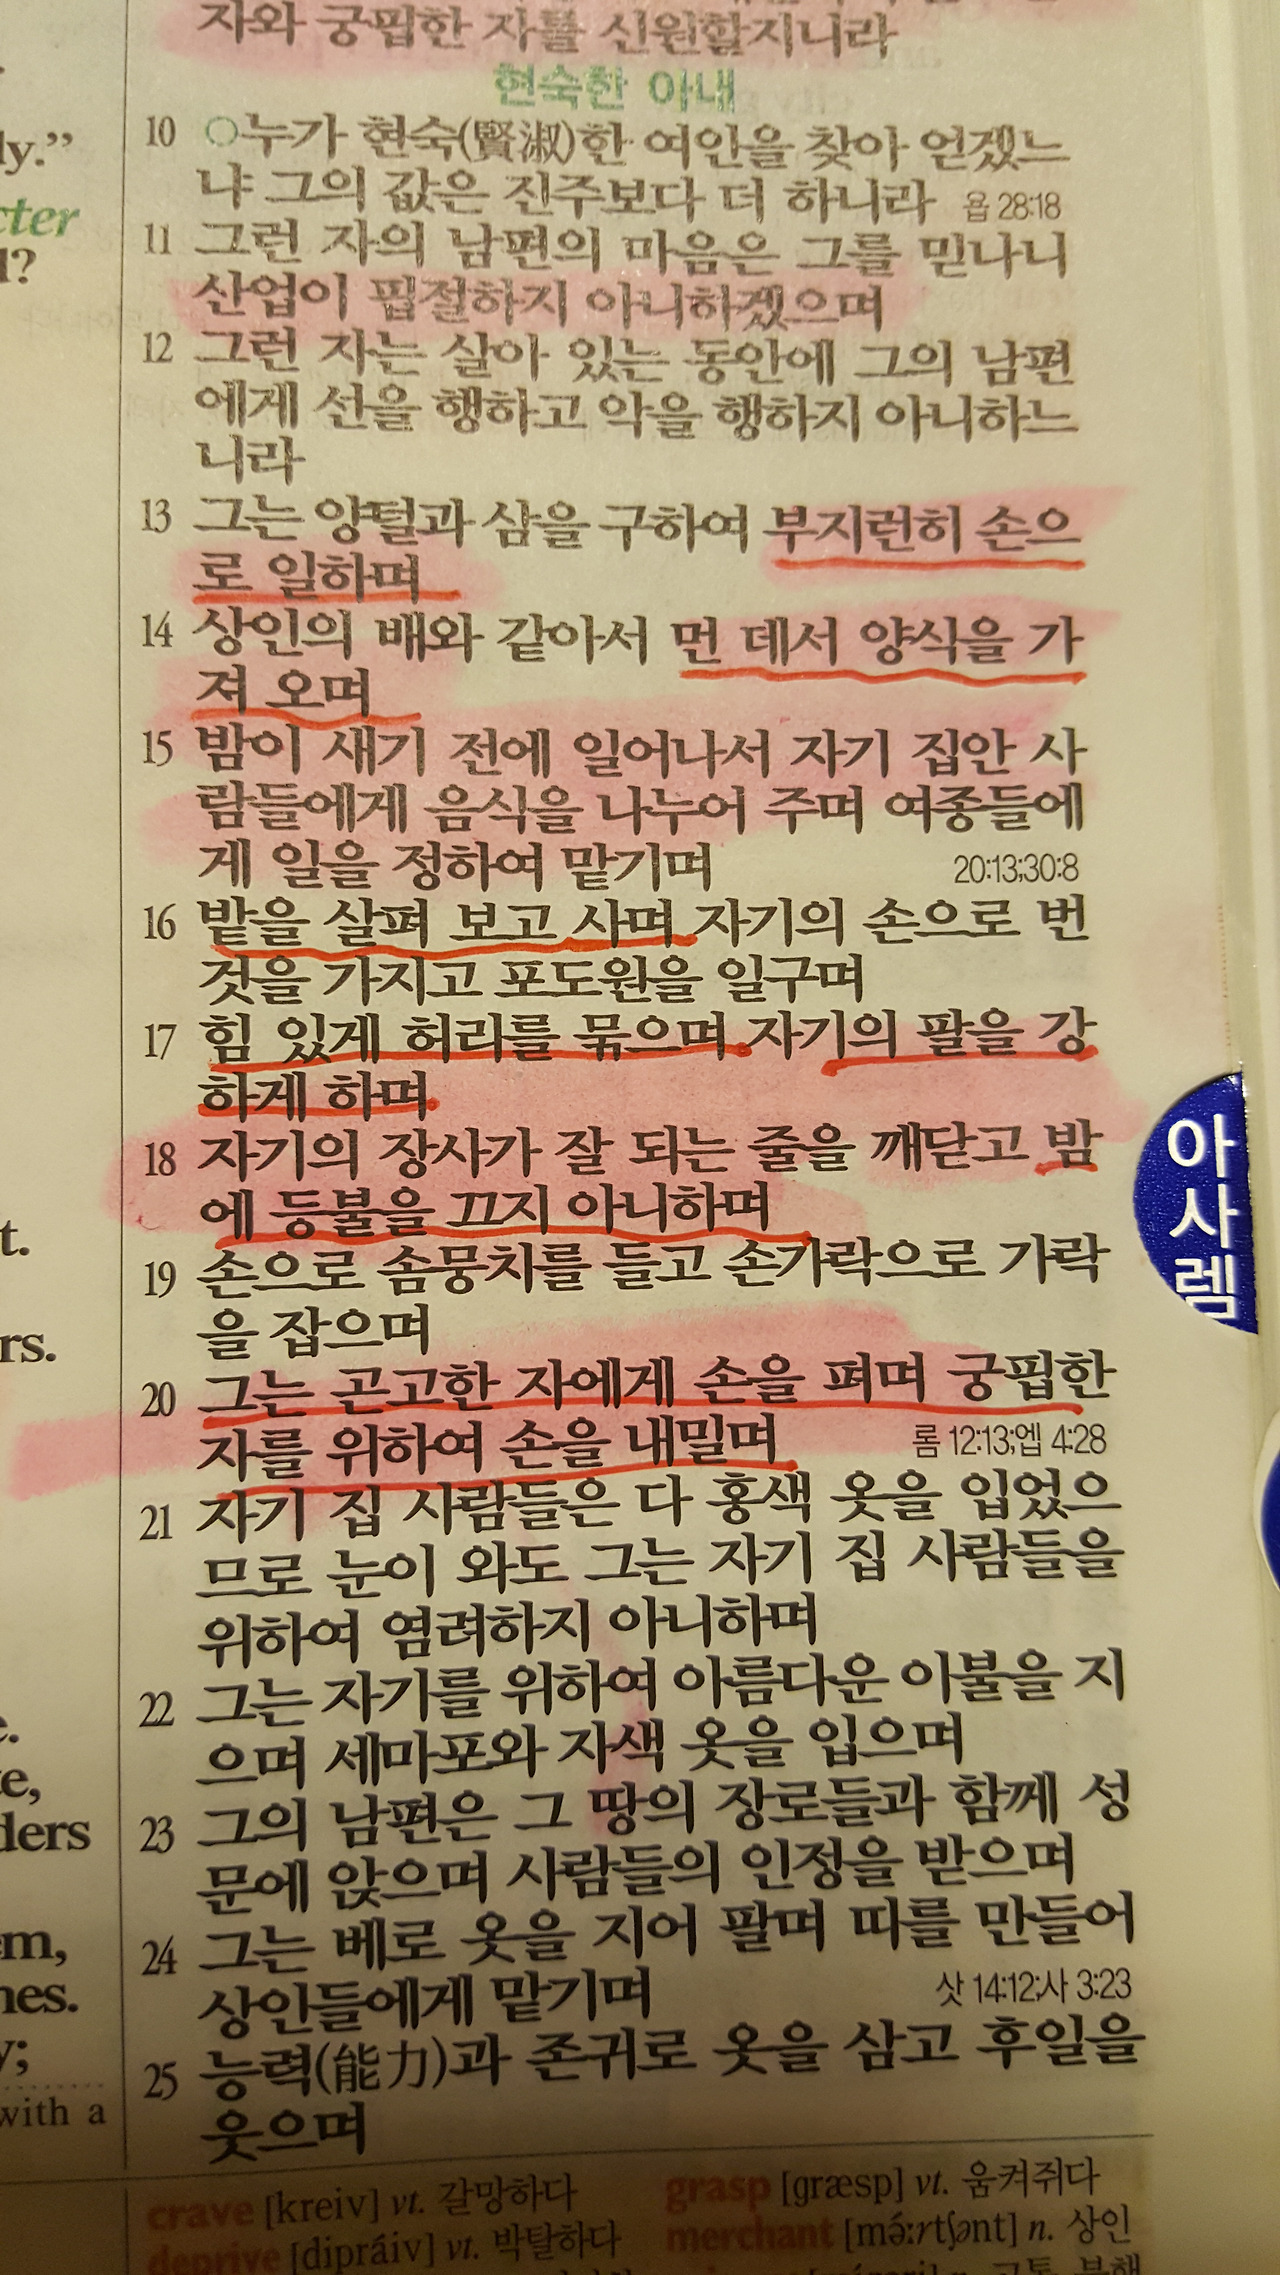 자와 궁핍한 자를 신원할지니라
현숙한 아내
10 ○누가 현숙(賢淑)한 여인을 찾아 얻겠느
냐 그의 값은 진주보다 더 하니라 욥 28:18
11 그런 자의 남편의 마음은 그를 믿나니
산업이 핍절하지 아니하겠으며
12 그런 자는 살아 있는 동안에 그의 남편
에게 선을 행하고 악을 행하지 아니하느
니라
13 그는 양털과 삼을 구하여 부지런히 손으
로 일하며
14 상인의 배와 같아서 먼 데서 양식을 가
져 오며
15 밤이 새기 전에 일어나서 자기 집안 사
람들에게 음식을 나누어 주며 여종들에
게 일을 정하여 맡기며 20:13;30:8
16 밭을 살펴 보고 사며 자기의 손으로 번
것을 가지고 포도원을 일구며
17 힘 있게 허리를 묶으며 자기의 팔을 강
하게 하며
18 자기의 장사가 잘 되는 줄을 깨닫고 밤
에 등불을 끄지 아니하며
19 손으로 솜뭉치를 들고 손가락으로 가락
을 잡으며
20 그는 곤고한 자에게 손을 펴며 궁핍한
자를 위하여 손을 내밀며 롬 12:13;엡 4:28
21 자기 집 사람들은 다 홍색 옷을 입었으
므로 눈이 와도 그는 자기 집 사람들을
위하여 염려하지 아니하며
22 그는 자기를 위하여 아름다운 이불을 지
으며 세마포와 자색 옷을 입으며
23 그의 남편은 그 땅의 장로들과 함께 성
문에 앉으며 사람들의 인정을 받으며
24 그는 베로 옷을 지어 팔며 띠를 만들어
상인들에게 맡기며 삿 14:12;사 3:23
25 능력(能力)과 존귀로 옷을 삼고 후일을
웃으며
crave [kreiv] vt. 갈망하다
deprive [dipráiv] vt. 박탈하다
grasp [græsp] vt. 움켜쥐다
merchant [mə́ːrtʃənt] n. 상인
아사렘
ly.”
cter
d?
t.
rs.
e.
te,
ders
em,
nes.
y;
with a